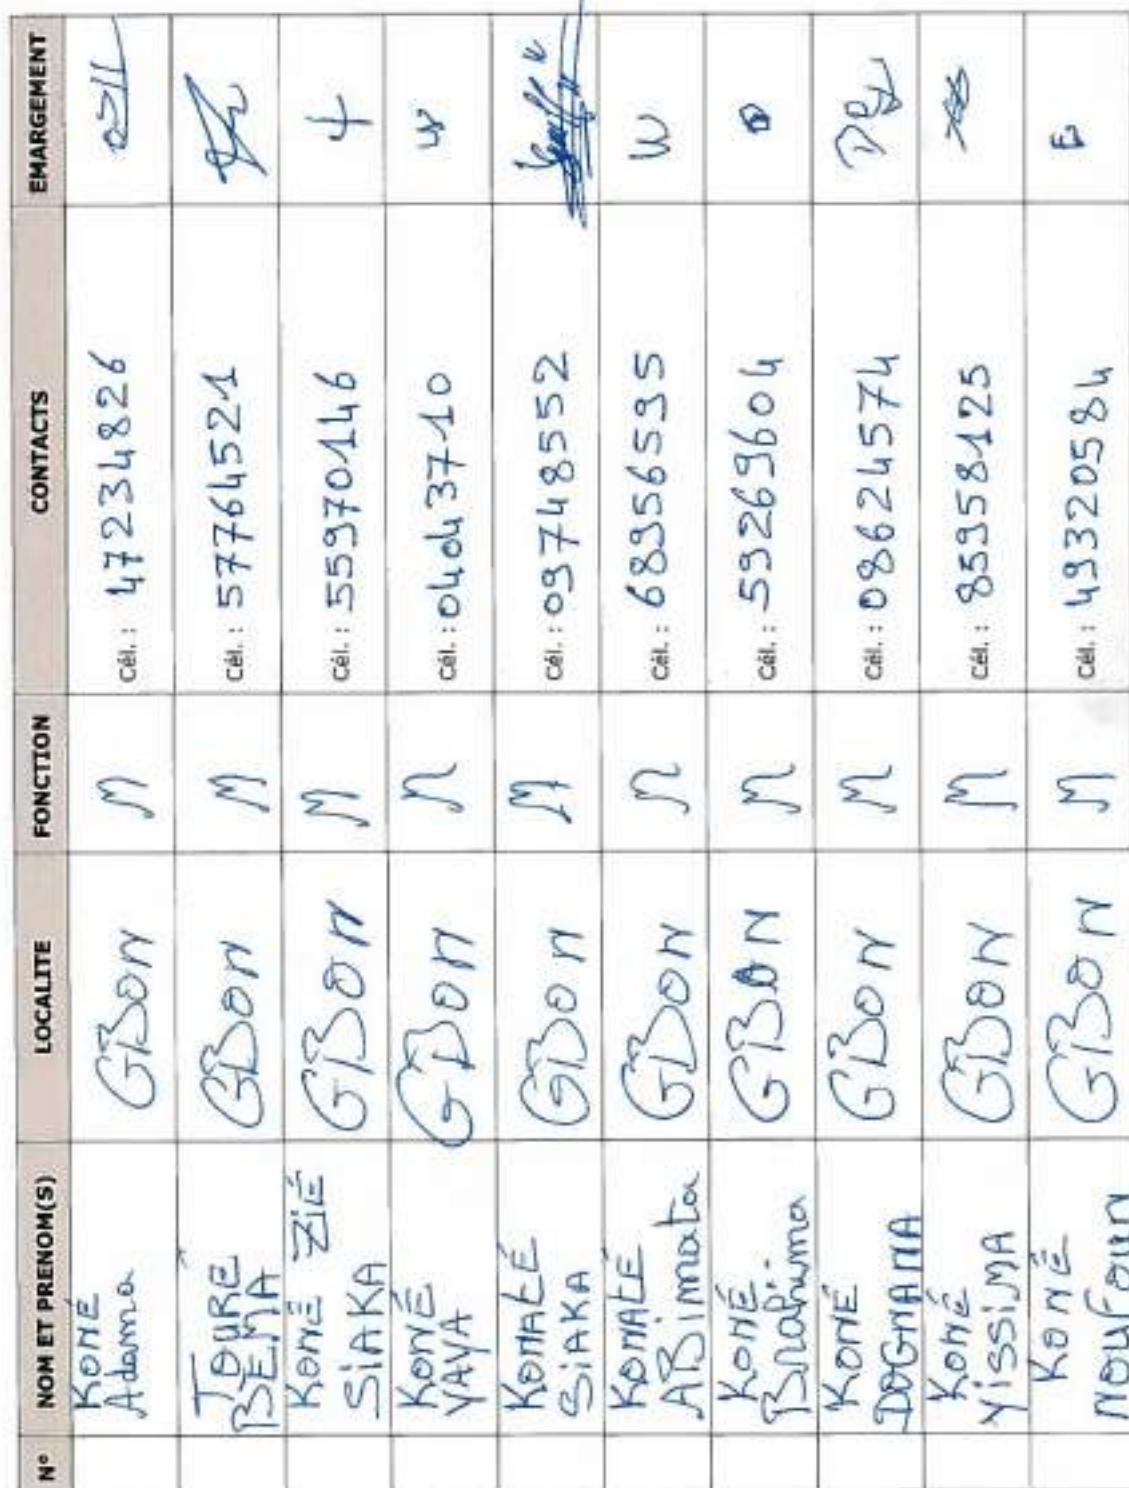 N° NOM ET PRENOM(S) LOCALITE FONCTION CONTACTS EMARGEMENT
KONÉ Adama GBON M Cél. : 47234826
TOURÉ BEMA GBON M Cél. : 57764521
KONÉ ZIÉ SIAKA GBON M Cél. : 55970146
KONÉ YAYA GBON M Cél. : 04043710
KONATÉ SIAKA GBON M Cél. : 09748552
KONATÉ ABimata GBON M Cél. : 68956595
KONÉ Brahima GBON M Cél. : 59269604
KONÉ DOGNANA GBON M Cél. : 08624574
KONÉ YISSIMA GBON M Cél. : 85958125
KONÉ GBON M Cél. : 49320584